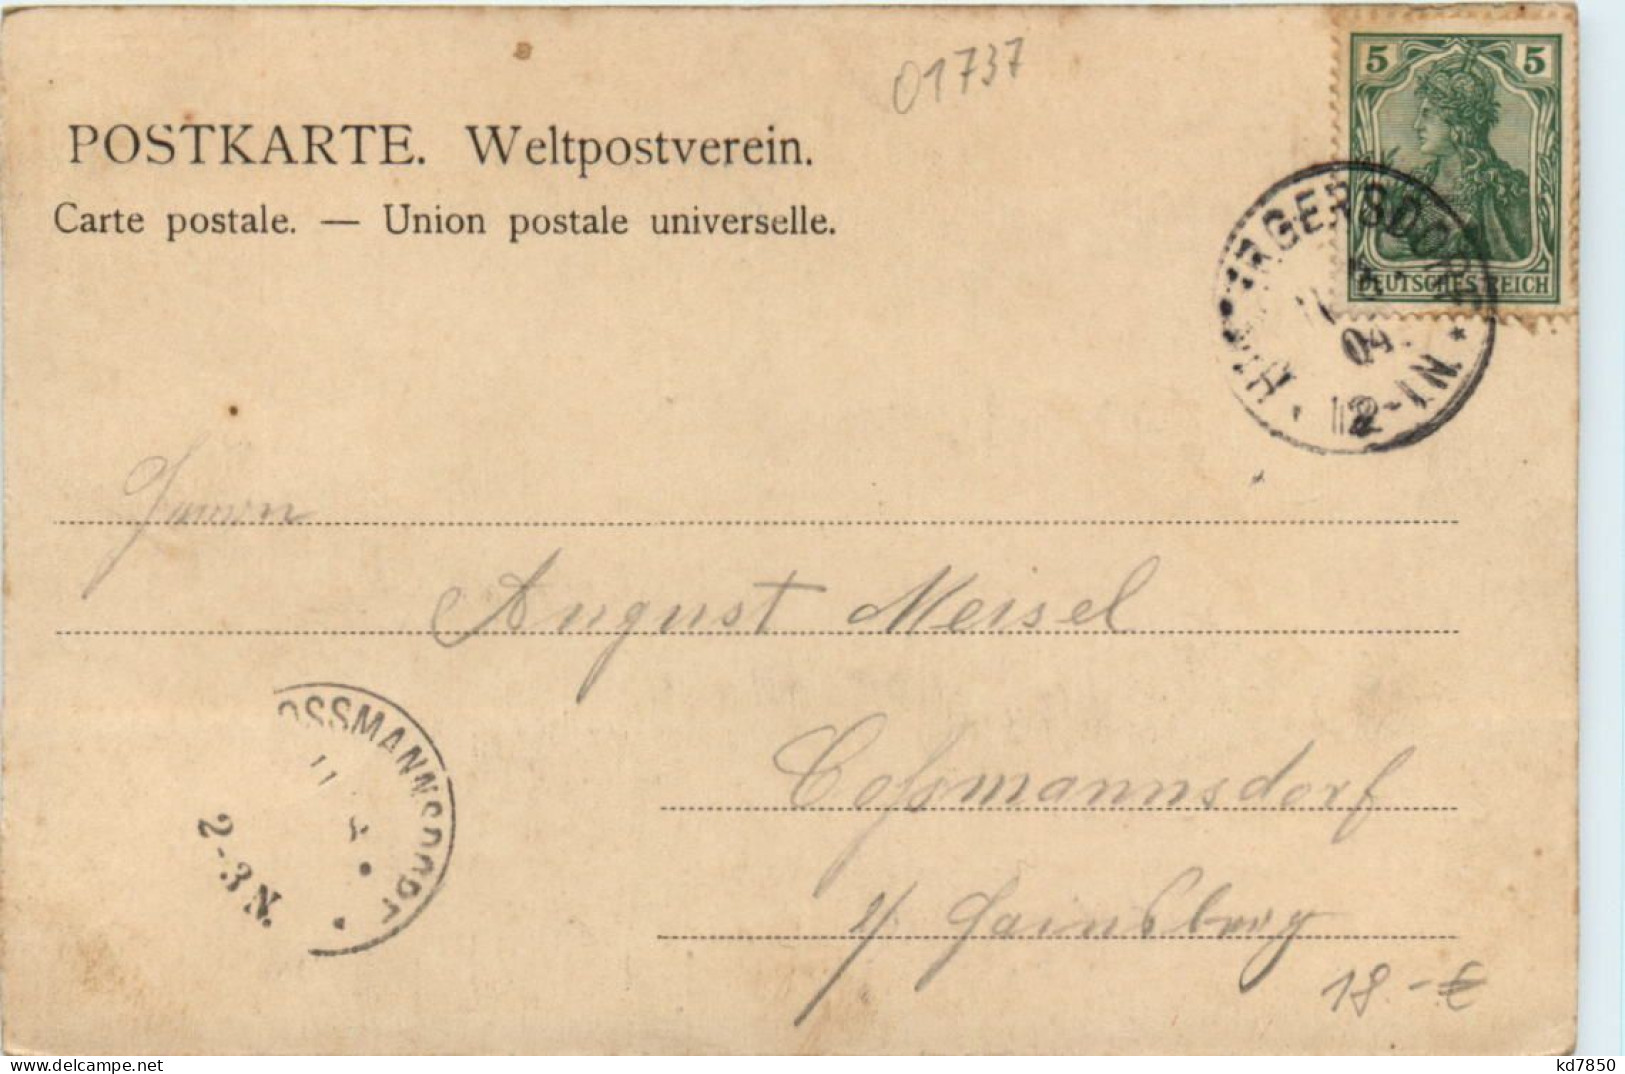 01737
5 5
POSTKARTE. Weltpostverein.
Carte postale. — Union postale universelle.
DEUTSCHES REICH
04
12-1N.
August Meisel
OSSMANNSDORF
11
2-3N.
Coßmannsdorf
Hainsberg
18.-€
kd7850